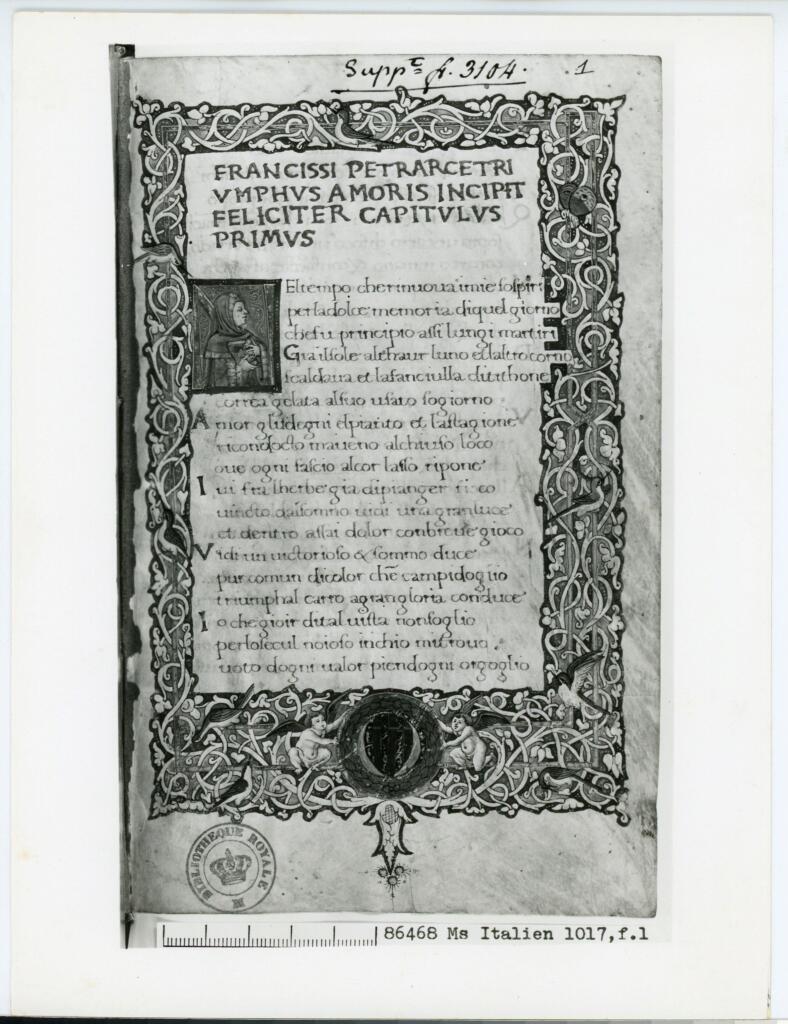 Suppt. fr. 3104. 1
FRANCISSI PETRARCE TRI
VMPHVS AMORIS INCIPIT
FELICITER CAPITVLVS
PRIMVS
El tempo che rinuoua i mie sospiri
per la dolce memoria di quel giorno
che fu principio assi lungi martiri
Gia il sole al thaur luno et laltro corno
scaldaua et la fanciulla di tithone
correa gelata al suo usato sogiorno
Amor gli sdegni el pianto et la stagione
ricondocto maueno al chiuso loco
oue ogni fascio al cor lasso ripone
Iui fra lherbe gia di pianger fioco
uincto dal somno uidi una gran luce
et dentro assai dolor con breue gioco
Vidi un uictorioso & sommo duce
pur comun di color che campidoglio
triumphal carro a gran gloria conduce
Io che gioir di tal uista non soglio
per lo secul noioso in chio mi trouo
uoto dogni ualor pien dogni orgoglio
BIBLIOTHEQUE ROYALE
86468 Ms Italien 1017,f.1